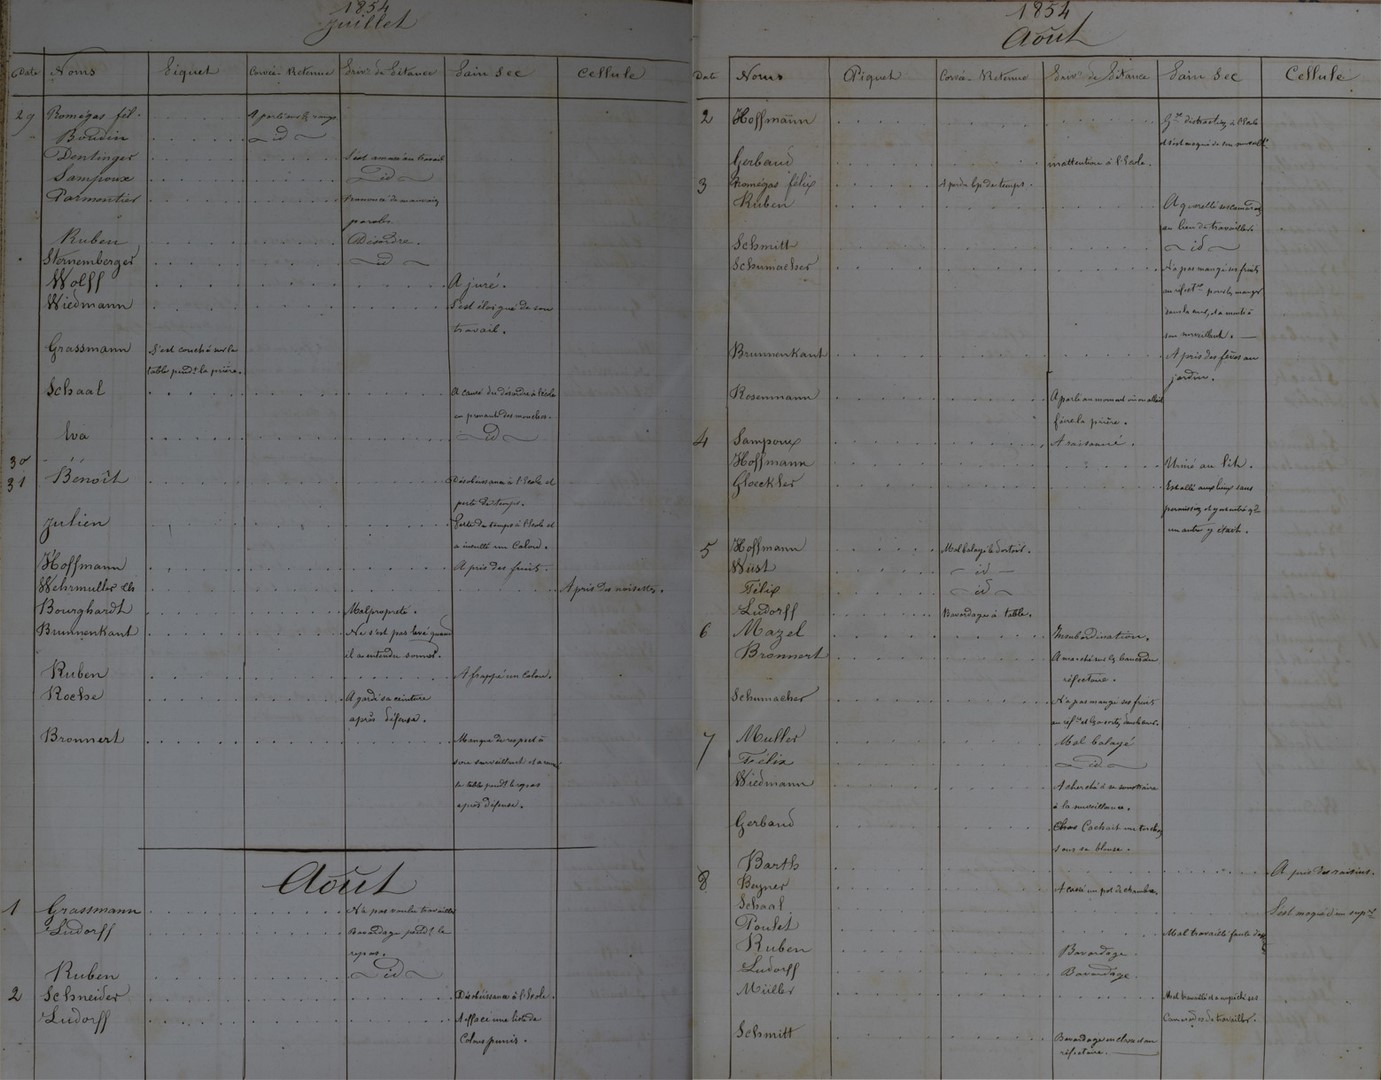 1854
Juillet
Date Noms Piquet Corvée-Retenue Priv.on de Pitance Pain Sec Cellule
29 Romégas fél. A parlé sur les rangs
Boudin id
Dentinger S'est amusé au travail
Sampoux id
Parmentier Prononcé de mauvaises
paroles.
Ruben Désordre.
Sternemberger id
Wolff A juré.
Wiedmann S'est éloigné de son
travail.
Grassmann S'est couché sur la
table pend.t la prière.
Schaal A causé du désordre à l'école
en prenant des mouches.
Iva id
30
31 Benoît Désobéissance à l'Ecole et
perte de temps.
Julien Perte de temps à l'Ecole et
a insulté un Colon.
Hoffmann A pris des fruits.
Wehrmuller A pris des noisettes.
Bourghardt Malpropreté.
Brunnenkant Ne s'est pas levé quand
il a entendu sonner.
Ruben A frappé un Colon.
Roche A gardé sa ceinture
après défense.
Bronnert Manque de respect à
son surveillant
de table pend.t le repas
après défense.
Août
1 Grassmann N'a pas voulu travailler
Ludorff Bavardage pend.t le
repas.
Ruben id
2 Schneider Désobéissance à l'Ecole.
Ludorff A effacé une liste de
Colons punis.
1854
Août
Date Noms Piquet Corvée-Retenue Priv.on de Pitance Pain Sec Cellule
2 Hoffmann G.de distraction à l'Ecole
et s'est moqué de son surveill.t
Gerbaud inattention à l'Ecole.
3 Romégas félix A perdu bp de temps.
Ruben A querellé ses camarades
au lieu de travailler.
Schmitt id
Schumacher N'a pas mangé ses fruits
au réfect.re pour les manger
dans la cour, et a menti à
son surveillant.
Brunnenkant A pris des fèves au
jardin.
Rosenmann A parlé au moment où on allait
faire la prière.
4 Sampoux A raisonné.
Hoffmann Uriné au lit.
Gloeckler Est allé aux lieux sans
permission et quand
un autre y était.
5 Hoffmann Mal balayé le dortoir.
Wüst id
Félix id
Ludorff Bavardage à table.
6 Mazel Insubordination.
Bronnert A marché sur les bancs du
réfectoire.
Schumacher N'a pas mangé ses fruits
au réf.re et les a sortis dans la cour.
7 Muller Mal balayé
Félix id
Wiedmann A cherché à se soustraire
à la surveillance.
Gerbaud Cachait une torchon
sous sa blouse.
Barth A pris des raisins.
8 Beyner A cassé un pot de chambre.
Schaal S'est moqué d'un sup.r
Poulet Mal travaillé
Ruben Bavardage.
Ludorff Bavardage
Müller Mal travaillé et empêché ses
Camarades de travailler.
Schmitt Bavardage en classe et au
réfectoire.